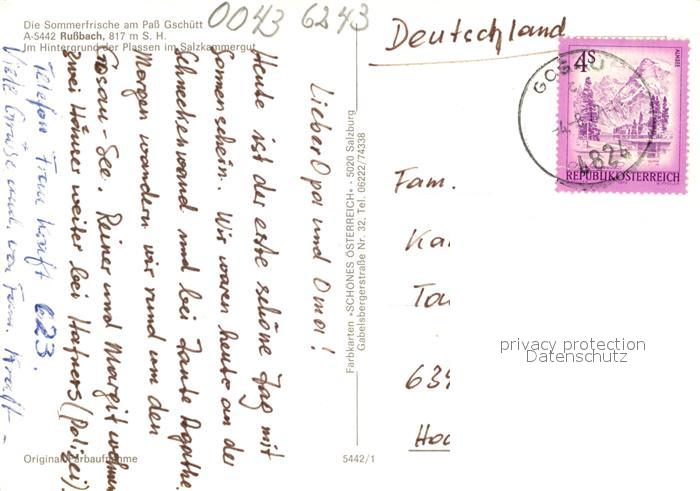 Die Sommerfrische am Paß Gschütt
A-5442 Rußbach, 817 m S. H.
Jm Hintergrund der Plassen im Salzkammergut
0043 6243
Lieber Opa und Oma!
Heute ist der erste schöne Tag mit
Sonnenschein. Wir waren heute an der
und bei Tante Agathe.
Morgen wandern wir rund um den
Gosau-See. Reiner und Margit wohnen
zwei Häuser weiter bei Hafners (Polizei).
Telefon Frau Kraft 623.
Viele Grüße von Fam. Kraft -
Original Farbaufnahme
5442/1
Farbkarten »SCHÖNES ÖSTERREICH« - 5020 Salzburg
Gabelsbergerstraße Nr. 32, Tel. 06222/74338
Deutschland
4S
ALMSEE
REPUBLIK ÖSTERREICH
4824
Fam.
Ka
639
Hoc
privacy protection
Datenschutz